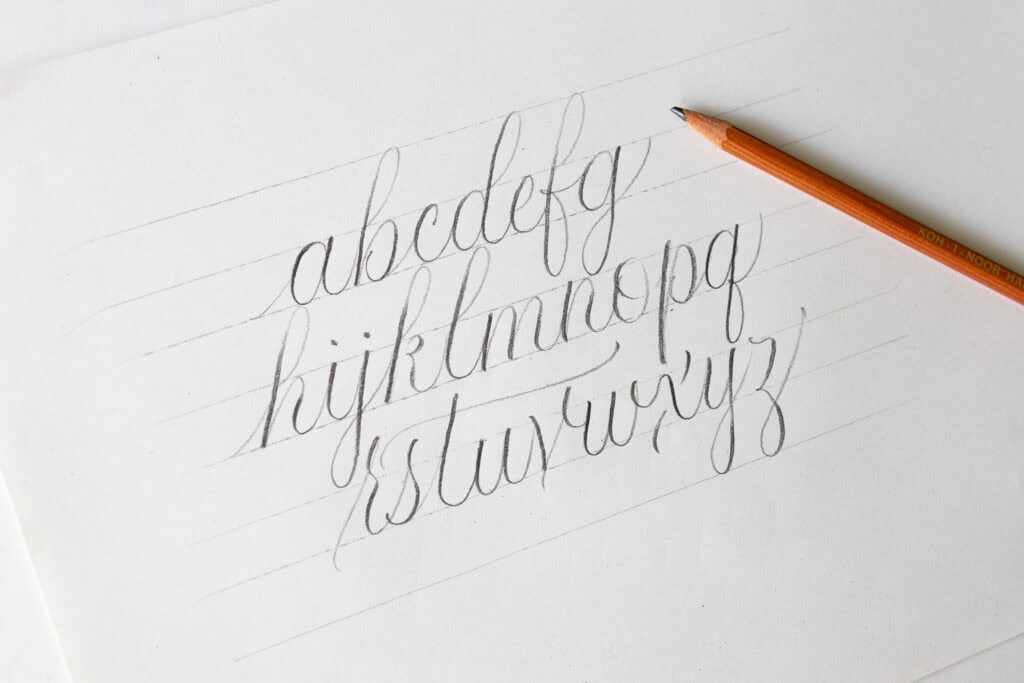 abcdefg
hijklmnopq
rstuvwxyz
KOH-I-NOOR HA